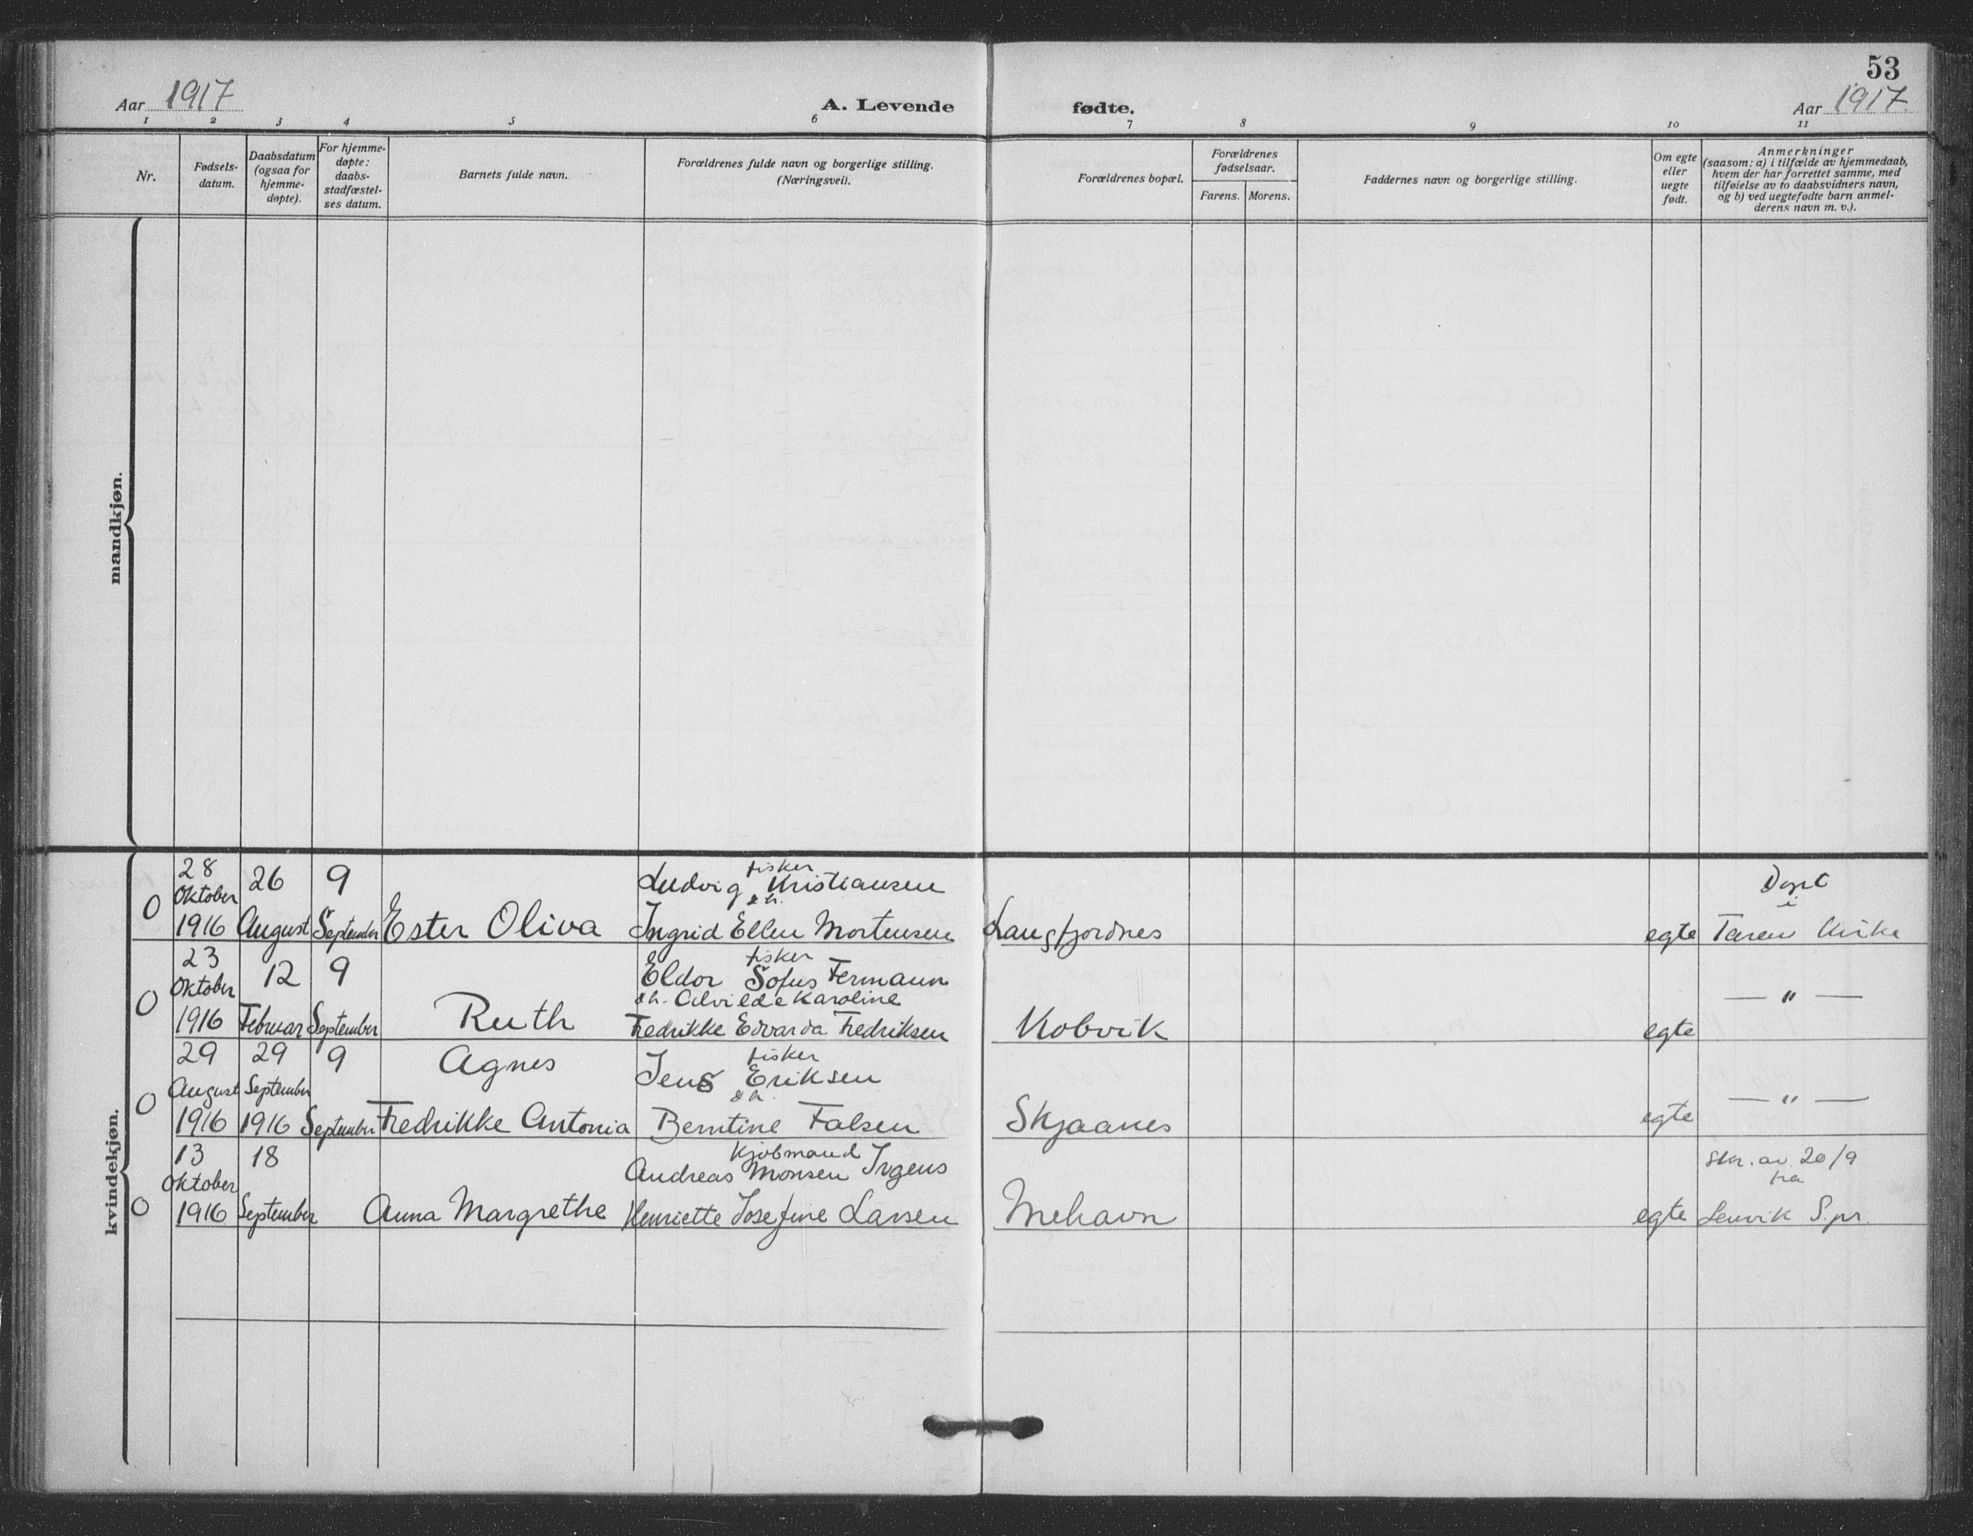 53
Aar 1917
A. Levende
fødte.
Aar 1917.
1 2 3 4 5 6 7 8 9 10 11
Nr.
Fødsels-
datum.
Daabsdatum
(ogsaa for
hjemme-
døpte).
For hjemme-
døpte:
daabs-
stadfæstel-
ses datum.
Barnets fulde navn.
Forældrenes fulde navn og borgerlige stilling.
(Næringsvei).
Forældrenes bopæl.
Forældrenes
fødselsaar.
Farens. Morens.
Faddernes navn og borgerlige stilling.
Om egte
eller
uegte
født.
Anmerkninger
(saasom: a) i tilfælde av hjemmedaab,
hvem der har forrettet samme, med
tilføielse av to daabsvidners navn,
og b) ved uegtefødte barn anmel-
derens navn m. v.).
mandkjøn.
kvindekjøn.
28 fisker
Oktober 26 9 Ludvig Kristiansen Døpt
0 & h. i
1916 August September Ester Oliva Ingrid Ellen Mortensen Langfjordnes egte Tanen Kirke
23 fisker
Oktober 12 9 Eldor Sofus Fermann
0 & h. Alvilde Karoline — " —
1916 Februar September Ruth Fredrikke Edvarda Fredriksen Kobvik egte
29 29 9 Agnes fisker
Jens Eriksen
August September & h.
0 — " —
1916 1916 September Fredrikke Antonia Berntine Falsen Skjaanes egte
13 18 Kjøbmand
Oktober Andreas Monsen Irgens Skr. av 20/9
0 fra
1916 September Anna Margrethe Henriette Josefine Larsen Mehavn egte Lenvik S.pr.